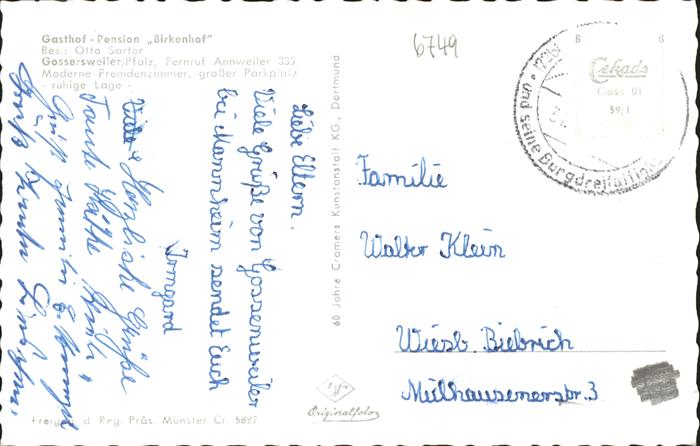 Gasthof - Pension „Birkenhof"
Bes.: Otto Sarter
Gossersweiler/Pfalz, Fernruf Annweiler 335
Moderne Fremdenzimmer, großer Parkplatz
- ruhige Lage -
6749
Liebe Eltern.
Viele Grüße von Gossersweiler
bei Mannheim sendet Euch
Irmgard
Viele Herzliche Grüße
Tante Käthe
Gruß
Gruß
60 Jahre Cramers Kunstanstalt KG, Dortmund
Familie
Walter Klein
Wiesb. Biebrich
Mülhausenerstr. 3
B B
Cekade
Goss 01
59/1
und seine Burgdreifaltigkeit
Originalfoto
Freig. d. Reg. Präs. Münster Cr. 5627